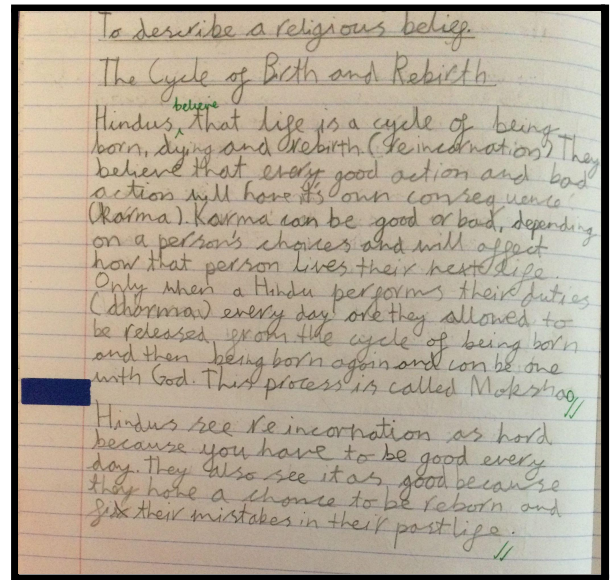 To describe a religious belief.
The Cycle of Birth and Rebirth
believe
Hindus, that life is a cycle of being
born, dying and rebirth (reincarnation) They
believe that every good action and bad
action will have it's own consequence
(karma). Karma can be good or bad, depending
on a person's choices and will affect
how that person lives their next life.
Only when a Hindu performs their duties
(dharma) every day are they allowed to
be released from the cycle of being born
and then being born again and can be one
with God. This process is called Moksha
Hindus see reincarnation as hard
because you have to be good every
day. They also see it as good because
they have a chance to be reborn and
fix their mistakes in their past life.